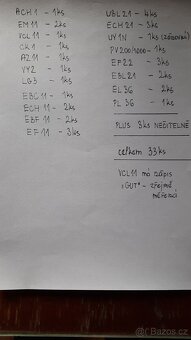 ACH 1 - 1ks
EM 11 - 2ks
VCL 11 - 1ks
CK 1 - 1ks
AZ 11 - 1ks
VY2 - 1ks
LG3 - 1ks
EBC 11 - 1ks
ECH 11 - 2ks
EBF 11 - 2ks
EF 11 - 3ks
UBL 21 - 4ks
ECH 21 - 3ks
UY1N - 1ks
PV200/1000 - 1ks
EF22 - 3ks
EBL21 - 2ks
EL 36 - 2ks
PL 36 - 1ks
PLUS 3ks NEČITELNÉ
celkem 33ks
VCL 11 má nápis
"GUT" - zřejmě
měřená
bazos.cz